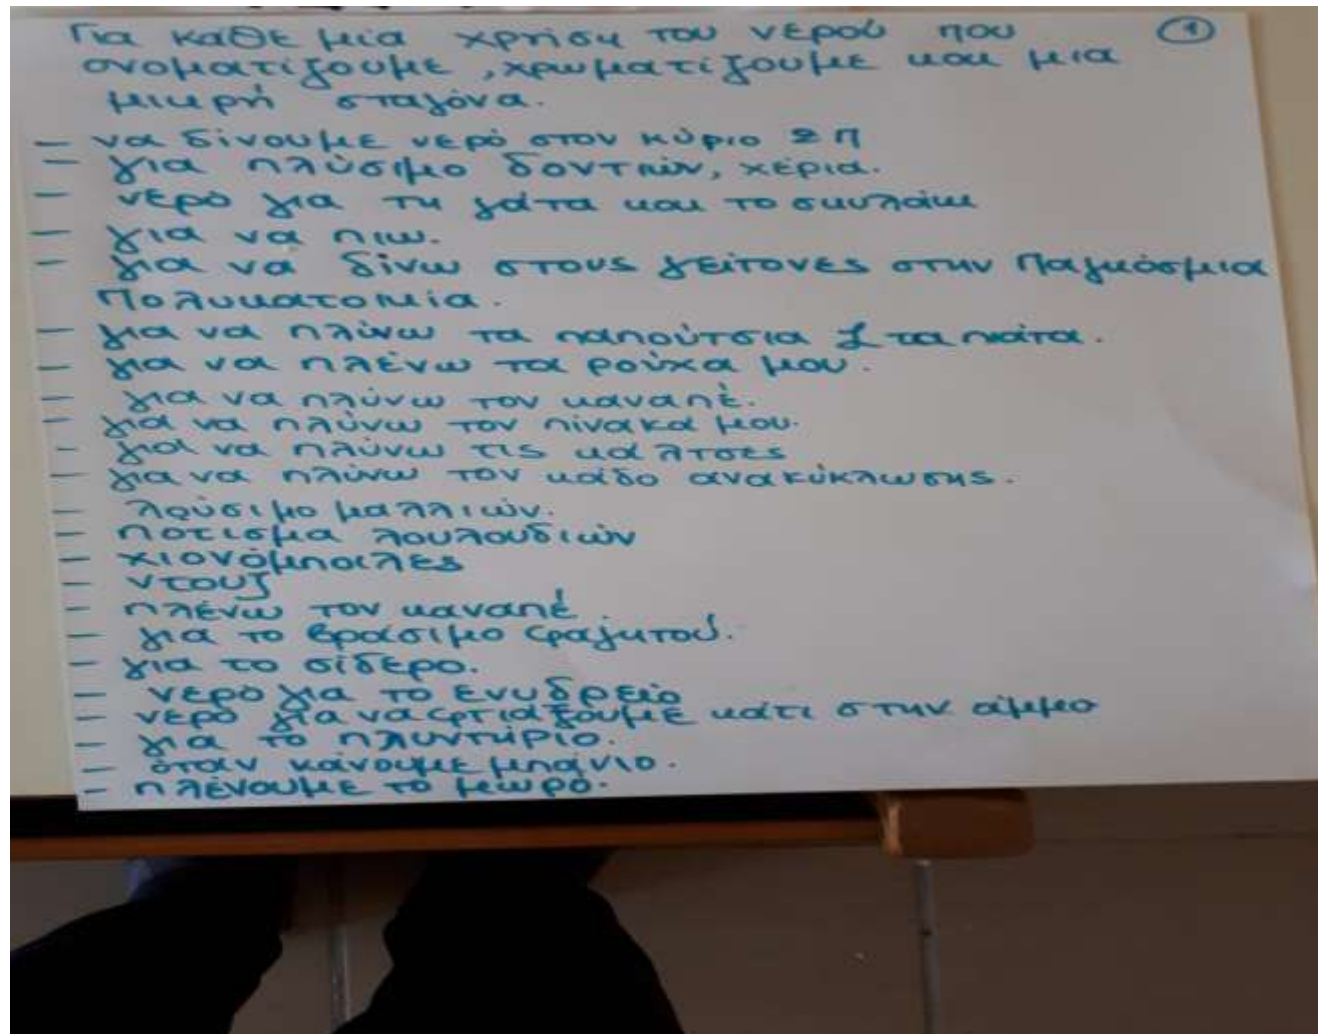 Για κάθε μία χρήση του νερού που ①
ονοματίζουμε, χρωματίζουμε και μια
μικρή σταγόνα.
- να δίνουμε νερό στον κύριο 2Π
- για πλύσιμο δοντιών, χέρια.
- νερό για τη γάτα και το σκυλάκι
- για να πιω.
- για να δίνω στους γείτονες στην Παγκόσμια
Πολυκατοικία.
- για να πλύνω τα παπούτσια & τα πιάτα.
- για να πλένω τα ρούχα μου.
- για να πλύνω τον καναπέ.
- για να πλύνω τον πίνακά μου.
- για να πλύνω τις κάλτσες
- για να πλύνω τον κάδο ανακύκλωσης.
- λούσιμο μαλλιών.
- πότισμα λουλουδιών
- χιονόμπαλες
- ντουζ
- πλένω τον καναπέ
- για το βράσιμο φαγητού.
- για το σίδερο.
- νερό για το ενυδρείο
- νερό για να φτιάξουμε κάτι στην άμμο
- για το πλυντήριο.
- όταν κάνουμε μπάνιο.
- πλένουμε το μωρό.